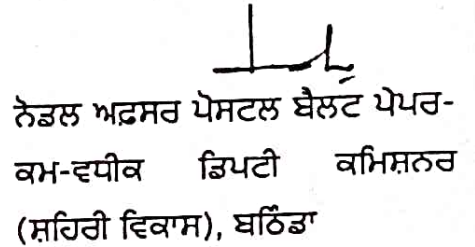 ਨੋਡਲ ਅਫ਼ਸਰ ਪੋਸਟਲ ਬੈਲਟ ਪੇਪਰ-
ਕਮ-ਵਧੀਕ ਡਿਪਟੀ ਕਮਿਸ਼ਨਰ
(ਸ਼ਹਿਰੀ ਵਿਕਾਸ), ਬਠਿੰਡਾ